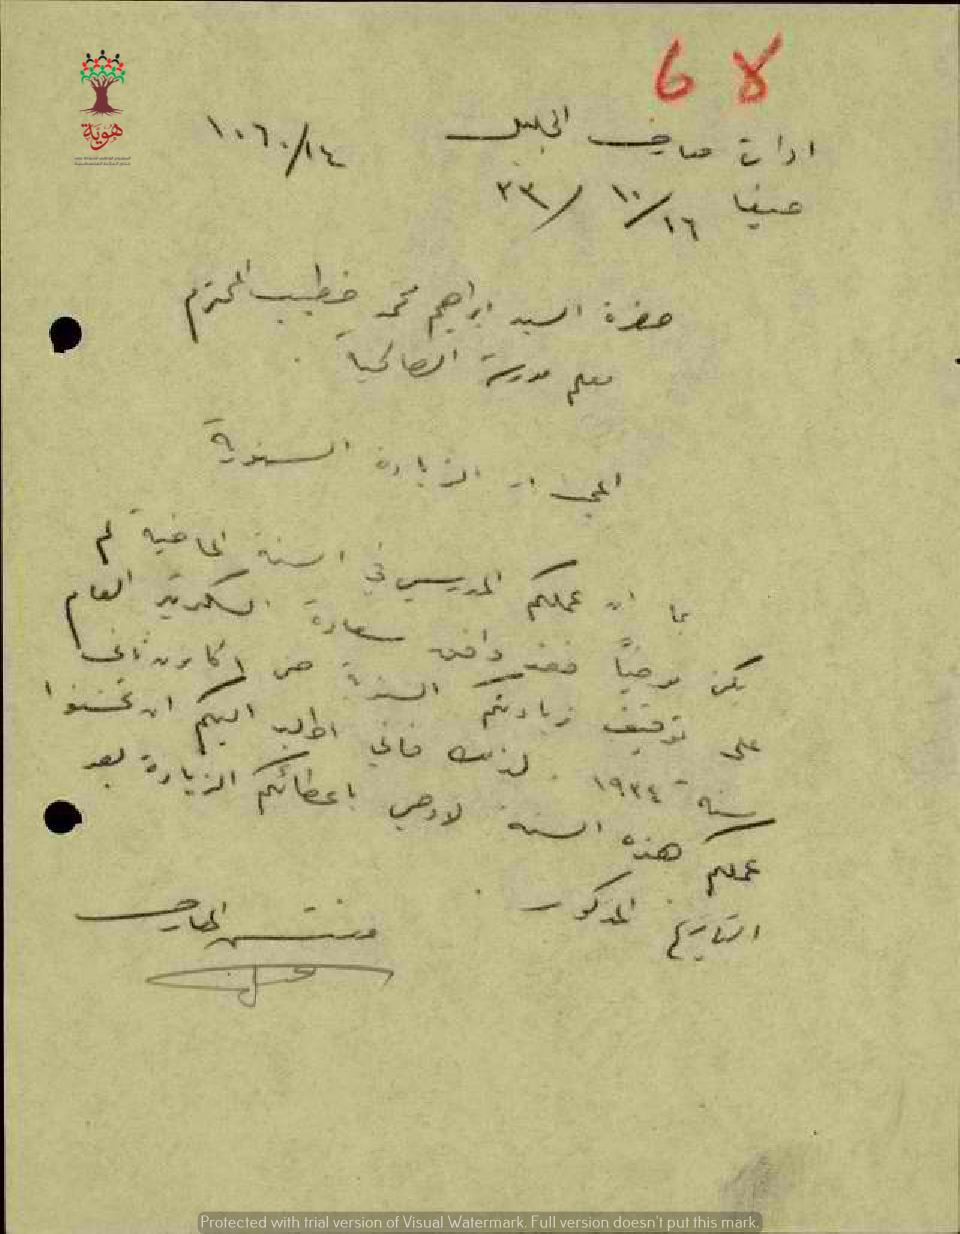 ادارة معارف الجليل
١٠٦٠/١٤
حيفا ١٦/١٠/٣٣
حضرة السيد ابراهيم محمد خطيب المحترم
معلم مدرسة الصالحية
الزيادة السنوية
بما ان عملكم المدرسي في السنة الماضية لم
يكن مرضياً فقد وافق سعادة السكرتير العام
على توقيف زيادتكم السنوية من ١ كانون ثاني
سنة ١٩٣٤. لذلك فاني اطلب اليكم ان تحسنوا
عملكم هذه السنة لاوصي باعطائكم الزيادة بعد
التاريخ المذكور.
مفتش المعارف
هوية
Protected with trial version of Visual Watermark. Full version doesn't put this mark.